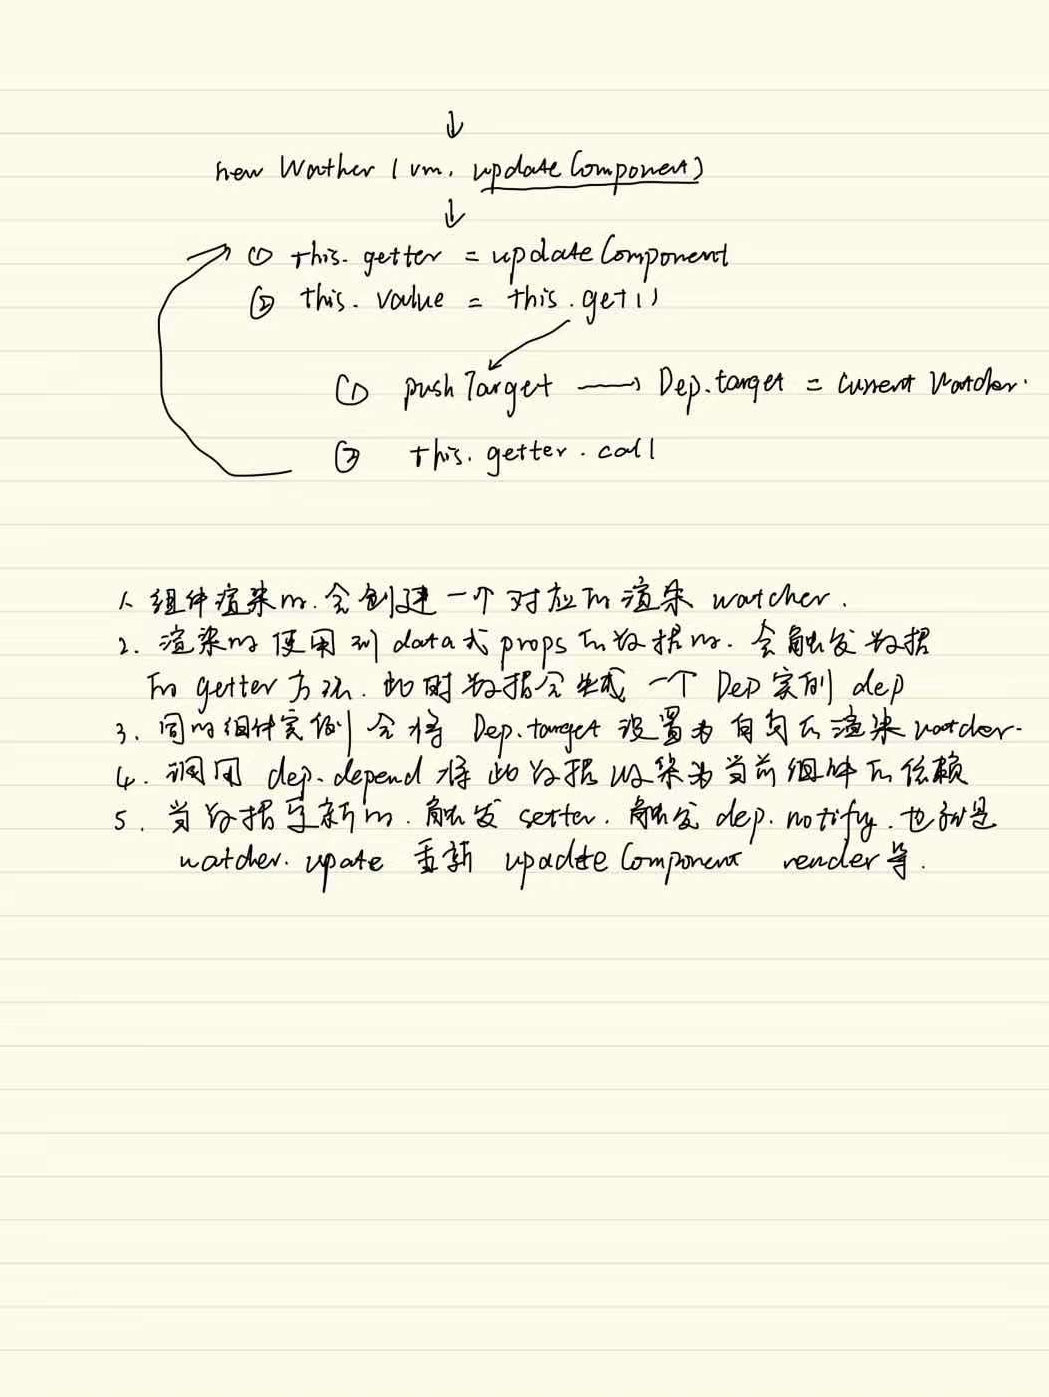 ↓
new Wather (vm, updateComponent)
↓
① this.getter = updateComponent
② this.value = this.get()
① pushTarget → Dep.target = current Watcher.
② this.getter.call
1. 组件渲染时.会创建一个对应的渲染 watcher.
2. 渲染时使用到 data 或 props 的数据时.会触发数据
的 getter 方法.此时数据会生成一个 Dep 实例 dep
3. 同时组件实例会将 Dep.target 设置为自身的渲染 watcher.
4. 调用 dep.depend 将此数据收集为当前组件的依赖
5. 当数据更新时.触发 setter.触发 dep.notify.也就是
watcher.upate 重新 upadteComponent render等.